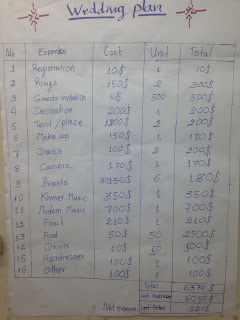 Wedding plan
No Expense Cost Unit Total
1 Registration 10$ 1 10$
2 Rings 150$ 2 300$
3 Guests invitation 1$ 500 500$
4 Decoration 200$ 1 200$
5 Tent / place 3
6 Make up 150$ 1 150$
7 Dress 100$ 2 200$
8 Camera 170$ 1 170$
9 6 180$
10 Music 350$ 1 350$
11 Modern Music 700$ 1 700$
12 Fruit 210$ 1 210$
13 Food 50$ 50 2500$
14 Drink 10$ 50 500$
15 Hairdresser 100$ 1 100$
16 Other 100$ 1 100$
Total 6570$
6050$
Total